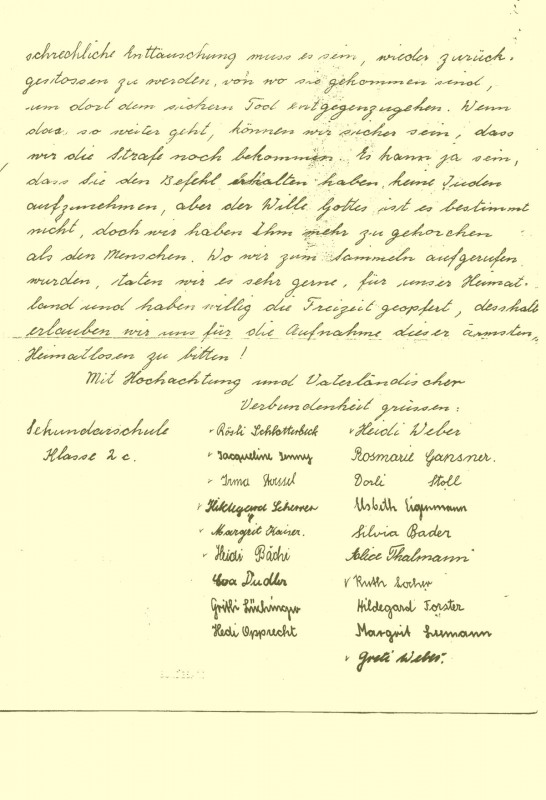 schreckliche Enttäuschung muss es sein, wieder zurück-
gestossen zu werden, von wo sie gekommen sind,
um dort dem sichern Tod entgegenzugehen. Wenn
das so weiter geht, können wir sicher sein, dass
wir die Strafe noch bekommen. Es kann ja sein,
dass Sie den Befehl erhalten haben, keine Juden
aufzunehmen, aber der Wille Gottes ist es bestimmt
nicht, doch wir haben Ihm mehr zu gehorchen
als den Menschen. Wo wir zum Sammeln aufgerufen
wurden, taten wir es sehr gerne, für unser Heimat-
land und haben willig die Freizeit geopfert, desshalb
erlauben wir uns für die Aufnahme dieser ärmsten
Heimatlosen zu bitten!
Mit Hochachtung und Vaterländischer
Verbundenheit grüssen:
Sekundarschule
Klasse 2c.
Rösli Schlatterbeck
Jacqueline Jenny
Irma
Hildegard Scherrer
Margrit Kaiser.
Heidi Bächi
Eva Dudler
Grithi Lüchinger
Hedi Opprecht
Heidi Weber
Rosmarie Gansner.
Dorli Stoll
Elsbeth Eigenmann
Silvia Bader
Alice Thalmann
Ruth Locher
Hildegard Forster
Margrit Leemann
Greti Weber.